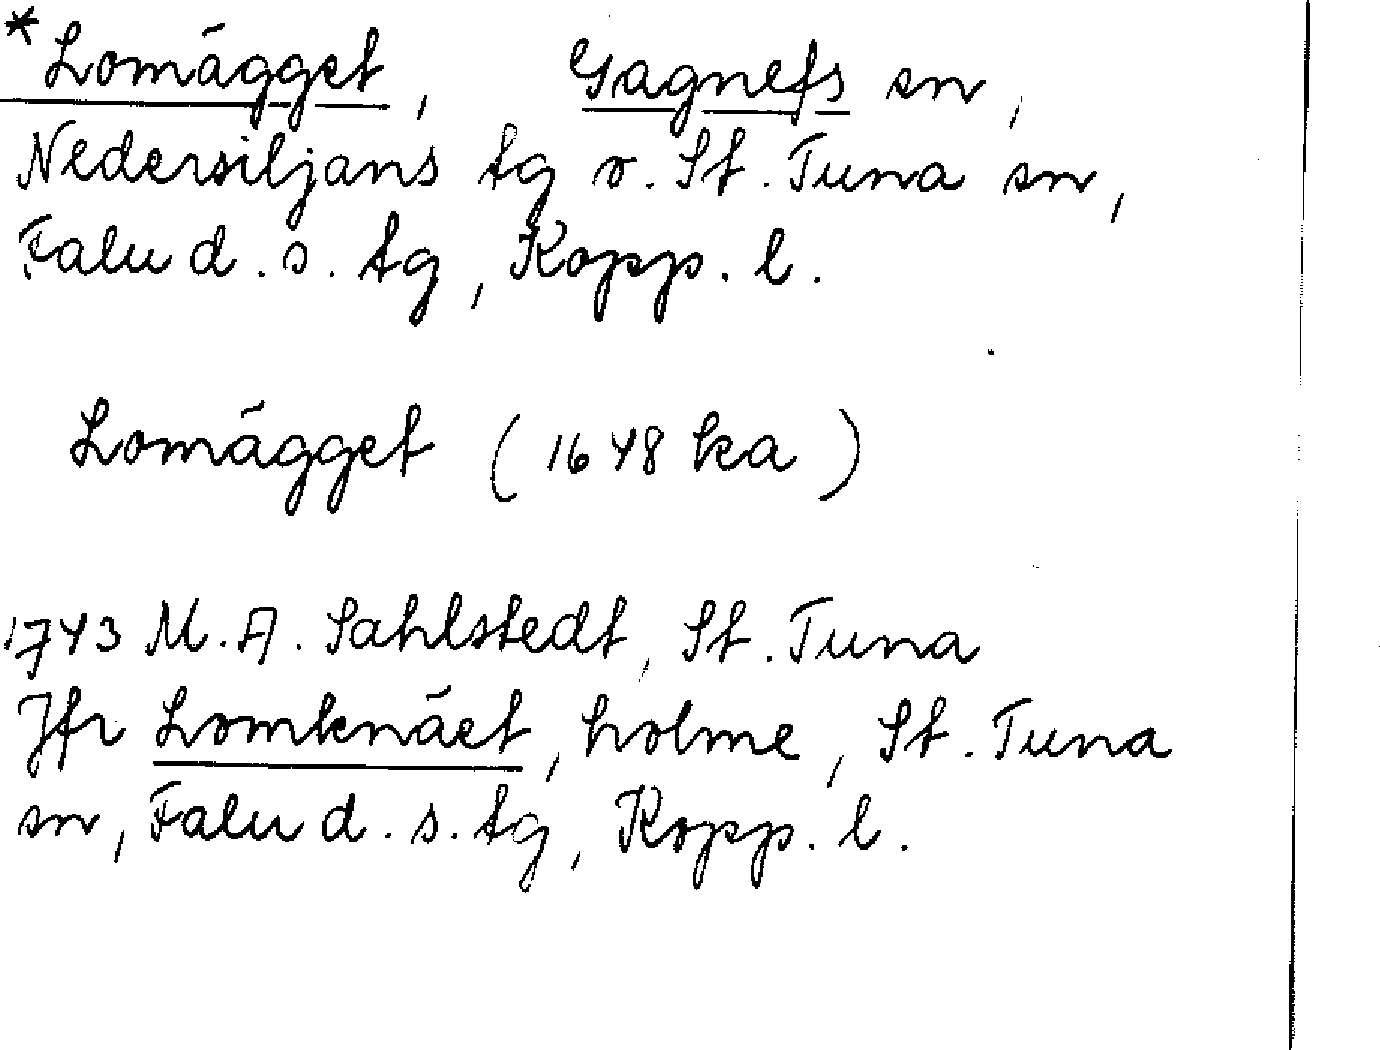 *Lomägget, Gagnefs sn,
Nedersiljans tg o. St. Tuna sn,
Falu d. s. tg, Kopp. l.
Lomägget (1648 ka)
1743 M. A. Sahlstedt, St. Tuna
Jfr Lomknäet, holme, St. Tuna
sn, Falu d. s. tg, Kopp. l.